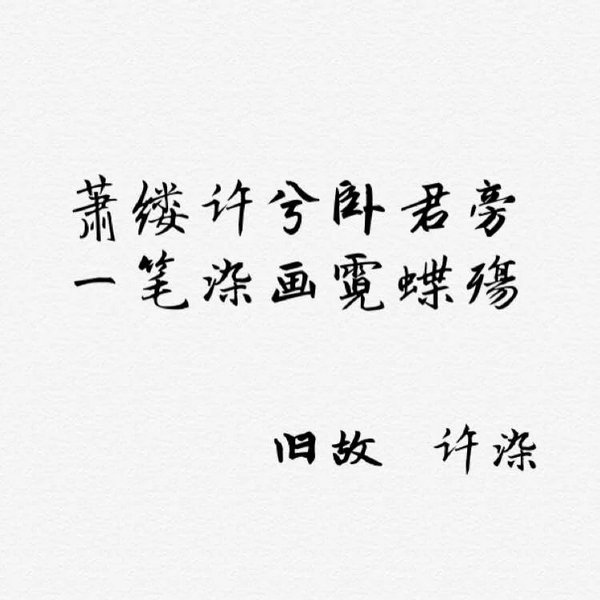 萧缕许兮卧君旁
一笔染画霓蝶殇
旧故 许染